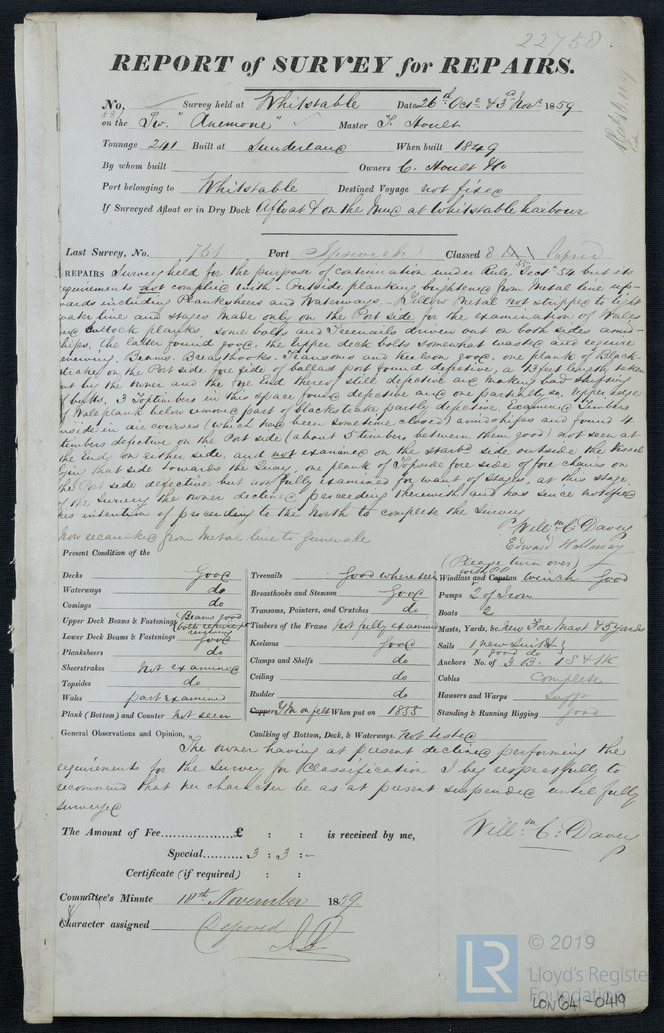 22758
REPORT of SURVEY for REPAIRS.
No, Survey held at Whitstable Date 26th Octr & 3rd Novr 1859
on the Sr. "Anemone" Master T. Hoult
Tonnage 241 Built at Sunderland When built 1849
By whom built Owners C. Hoult & Co
Port belonging to Whitstable Destined Voyage not fixed
If Surveyed Afloat or in Dry Dock Afloat & on the Mud at Whitstable harbour
Last Survey, No. 751 Port Ipswich Classed
REPAIRS Survey held for the purpose of continuation under Rule Sect 54 but its
requirements not complied with - Outside planking brightened from Metal line up-
wards including Planksheers and Waterways. - Yellow Metal not stripped to light
water line and stages made only on the Port side for the examination of Wales
and Futtock planks, some bolts and Treenails driven out on both sides amid-
ships, the latter found good, the upper deck bolts somewhat wasted and require
renewing. Beams. Breasthooks. Transoms and Keelson good, one plank of Black
strake on the Port side fore side of ballast port found defective, a 13 feet length taken
out by the owner and the fore End thereof still defective and making bad shifting
of butts. 3 Toptimbers in this space found defective and one partially so. Upper Edge
of Wale plank below removed part of blackstrake partly defective. Examined Timbers
inside in air courses (which had been sometime closed) amidships and found 4
timbers defective on the Port side (about 5 timbers between them good) not seen at
the Ends on either side. and not examined on the starbd side outside the vessel
lying that side towards the Quay, one plank of Topside fore side of fore chains on
the Port side defective but not fully examined for want of stages, at this stage
of the Survey the owner declined proceeding therewith and has since notified
his intention of proceeding to the North to complete the Survey
now decaulked from Metal line to Gunwale
Willm C. Davey
Edward Hollaway
(Please turn over)
Present Condition of the
Decks good
Waterways do
Comings do
Upper Deck Beams & Fastenings Beams good bolts require renewing
Lower Deck Beams & Fastenings good
Planksheers do
Sheerstrakes not examined
Topsides do
Wales part examined
Plank (Bottom) and Counter not seen
Treenails good where seen
Breasthooks and Stemson good
Transoms, Pointers, and Crutches do
Timbers of the Frame not fully examined
Keelsons good
Clamps and Shelfs do
Ceiling do
Rudder do
Copper Y.M on felt When put on 1855
Windlass and Capstan winch good
Pumps 2 of Iron
Boats 2
Masts, Yards, &c. new Fore Mast & 5 yards
Sails 1 new Suit & 1 good do
Anchors No. of 3 B. 1 S & 1 K
Cables Complete
Hausers and Warps Sufft
Standing & Running Rigging good
General Observations and Opinion, Caulking of Bottom, Deck, & Waterways. not tested
The owner having at present declined performing the
requirements for the Survey for Classification I beg respectfully to
recommend that her character be as at present suspended until fully
surveyed
Willm. C. Davey
The Amount of Fee.................£ : : is received by me,
Special.......... 3 : 3 : -
Certificate (if required) : :
Committee's Minute 18th November 1859
Character assigned Deferred
LR © 2019
Lloyd's Register
Foundation
LON641-0419